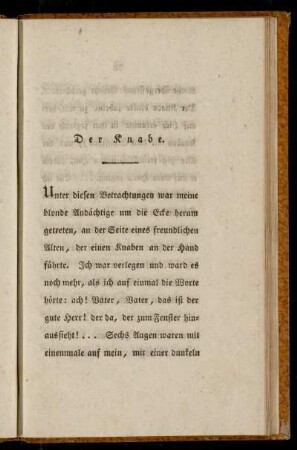 Der Knabe.
Unter diesen Betrachtungen war meine
blonde Andächtige um die Ecke herum
getreten, an der Seite eines freundlichen
Alten, der einen Knaben an der Hand
führte. Ich war verlegen und ward es
noch mehr, als ich auf einmal die Worte
hörte: ach! Vater, Vater, das ist der
gute Herr! der da, der zum Fenster hin-
aussieht!... Sechs Augen waren mit
einemmale auf mein, mit einer dunkeln